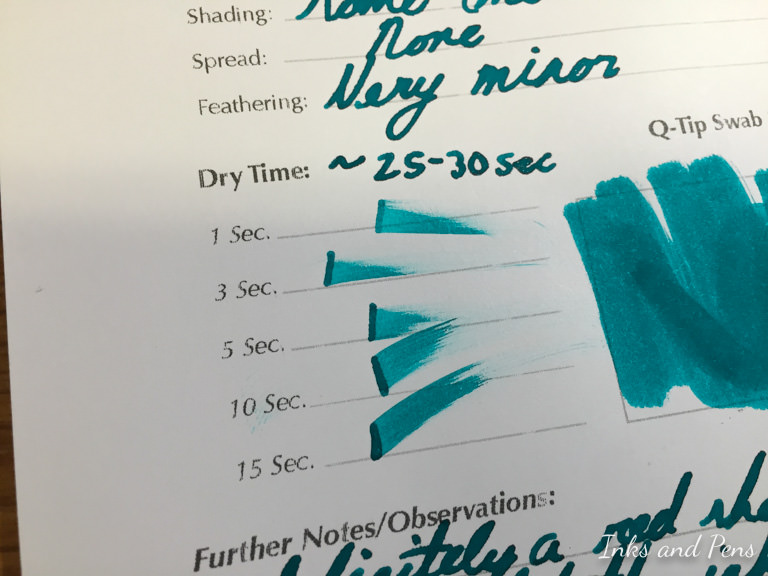 Shading:
Spread: None
Feathering: Very minor
Q-Tip Swab
Dry Time: ~ 25-30 sec
1 Sec.
3 Sec.
5 Sec.
10 Sec.
15 Sec.
Further Notes/Observations:
a red
Inks and Pens